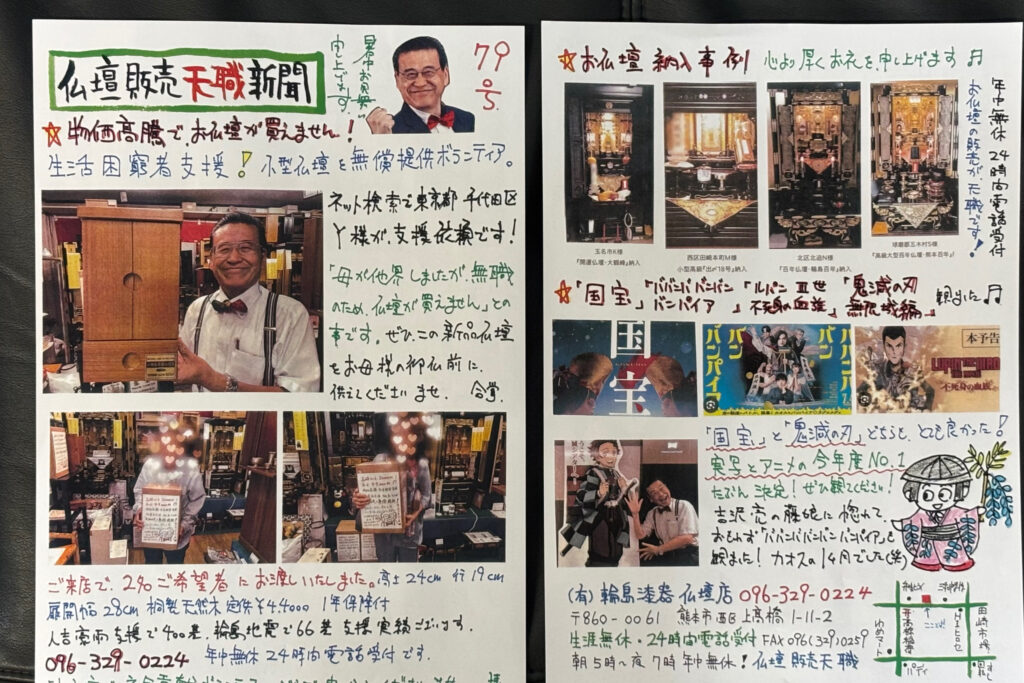 仏壇販売天職新聞
暑中お見舞い
申し上げます。
79
号
☆物価高騰で、お仏壇が買えません!
生活困窮者支援!小型仏壇を無償提供ボランティア。
ネット検索で東京都千代田区
Y様が、支援依頼です!
「母が他界しましたが、無職
のため、仏壇が買えません」との
事です。ぜひこの新品仏壇
をお母様の御仏前に、
供えてくださいませ。合掌。
ご来店で、2名ご希望者にお渡しいたしました。高さ24cm 行19cm
扉開幅28cm 桐製天然木 定価¥44000 1年保障付
人吉豪雨支援で400基、輪島地震で66基支援実績ございます。
096-329-0224 年中無休24時間電話受付です。
☆お仏壇納入事例 心より厚くお礼を申し上げます♬
年中無休24時間電話受付
お仏壇の販売が、天職です!
玉名市K様
『開運仏壇・大鶴崎』納入
西区田崎本町M様
小型高級『出〆18号』納入
北区北迫N様
『百年仏壇・輪島百年』納入
球磨郡五木村S様
『高級大型百年仏壇・熊本百年』納入
☆「国宝」「ババンババンバン バンパイア」「ルパン三世 不死身の血族」「鬼滅の刃 無限城編」観ました♬
国宝
ババンババンバンバンパイア
本予告
LUPIN THE IIIRD
不死身の血族
「国宝」と「鬼滅の刃」どちらも、とても良かった!
実写とアニメの今年度NO.1
たぶん決定!ぜひ観てください!
吉沢亮の藤娘に惚れて
おもわず「ババンババンバンバンパイア」も
観ました!カオスの1ヶ月でした(笑)
(有)輪島漆器仏壇店 096-329-0224
〒860-0061 熊本市西区上高橋1-11-2
生涯無休・24時間電話受付 FAX096(329)0259
朝5時〜夜7時年中無休!仏壇販売天職
ここだよ!
田崎市場
ゆめマート
パティ